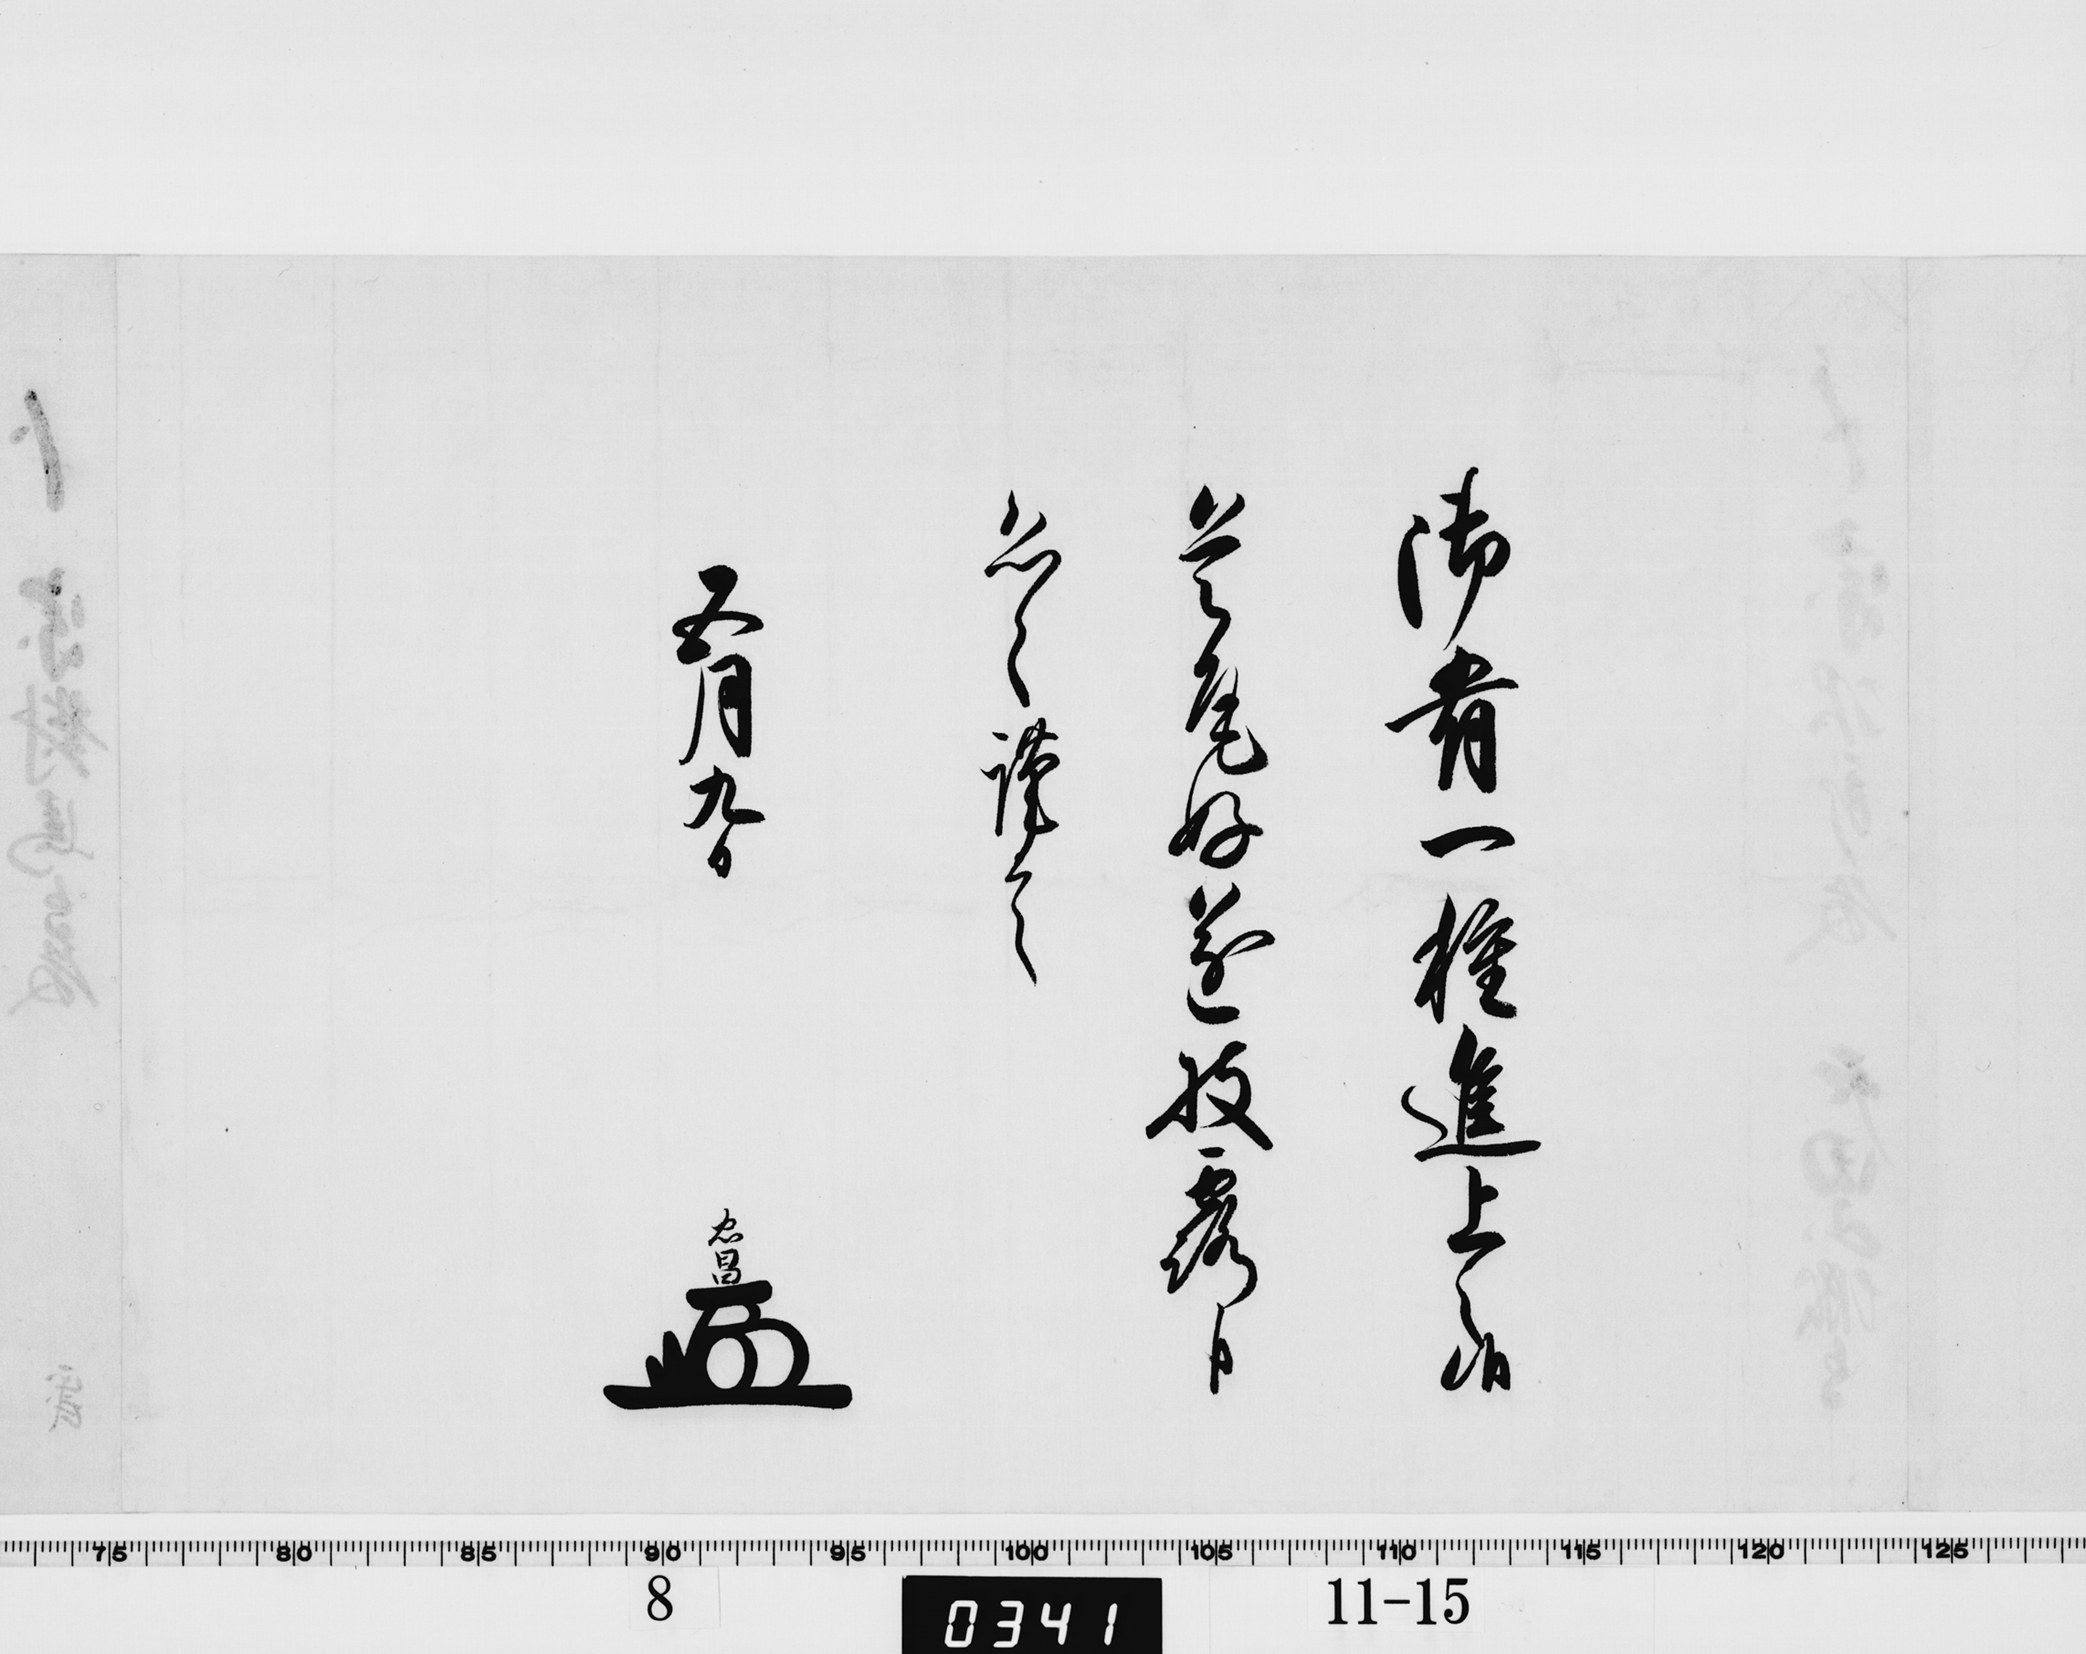 御肴一種進上之
首尾好遂披露候
恐々謹言
五月九日
忠昌
75 80 85 90 95 100 105 110 115 120 125
8
0341
11-15